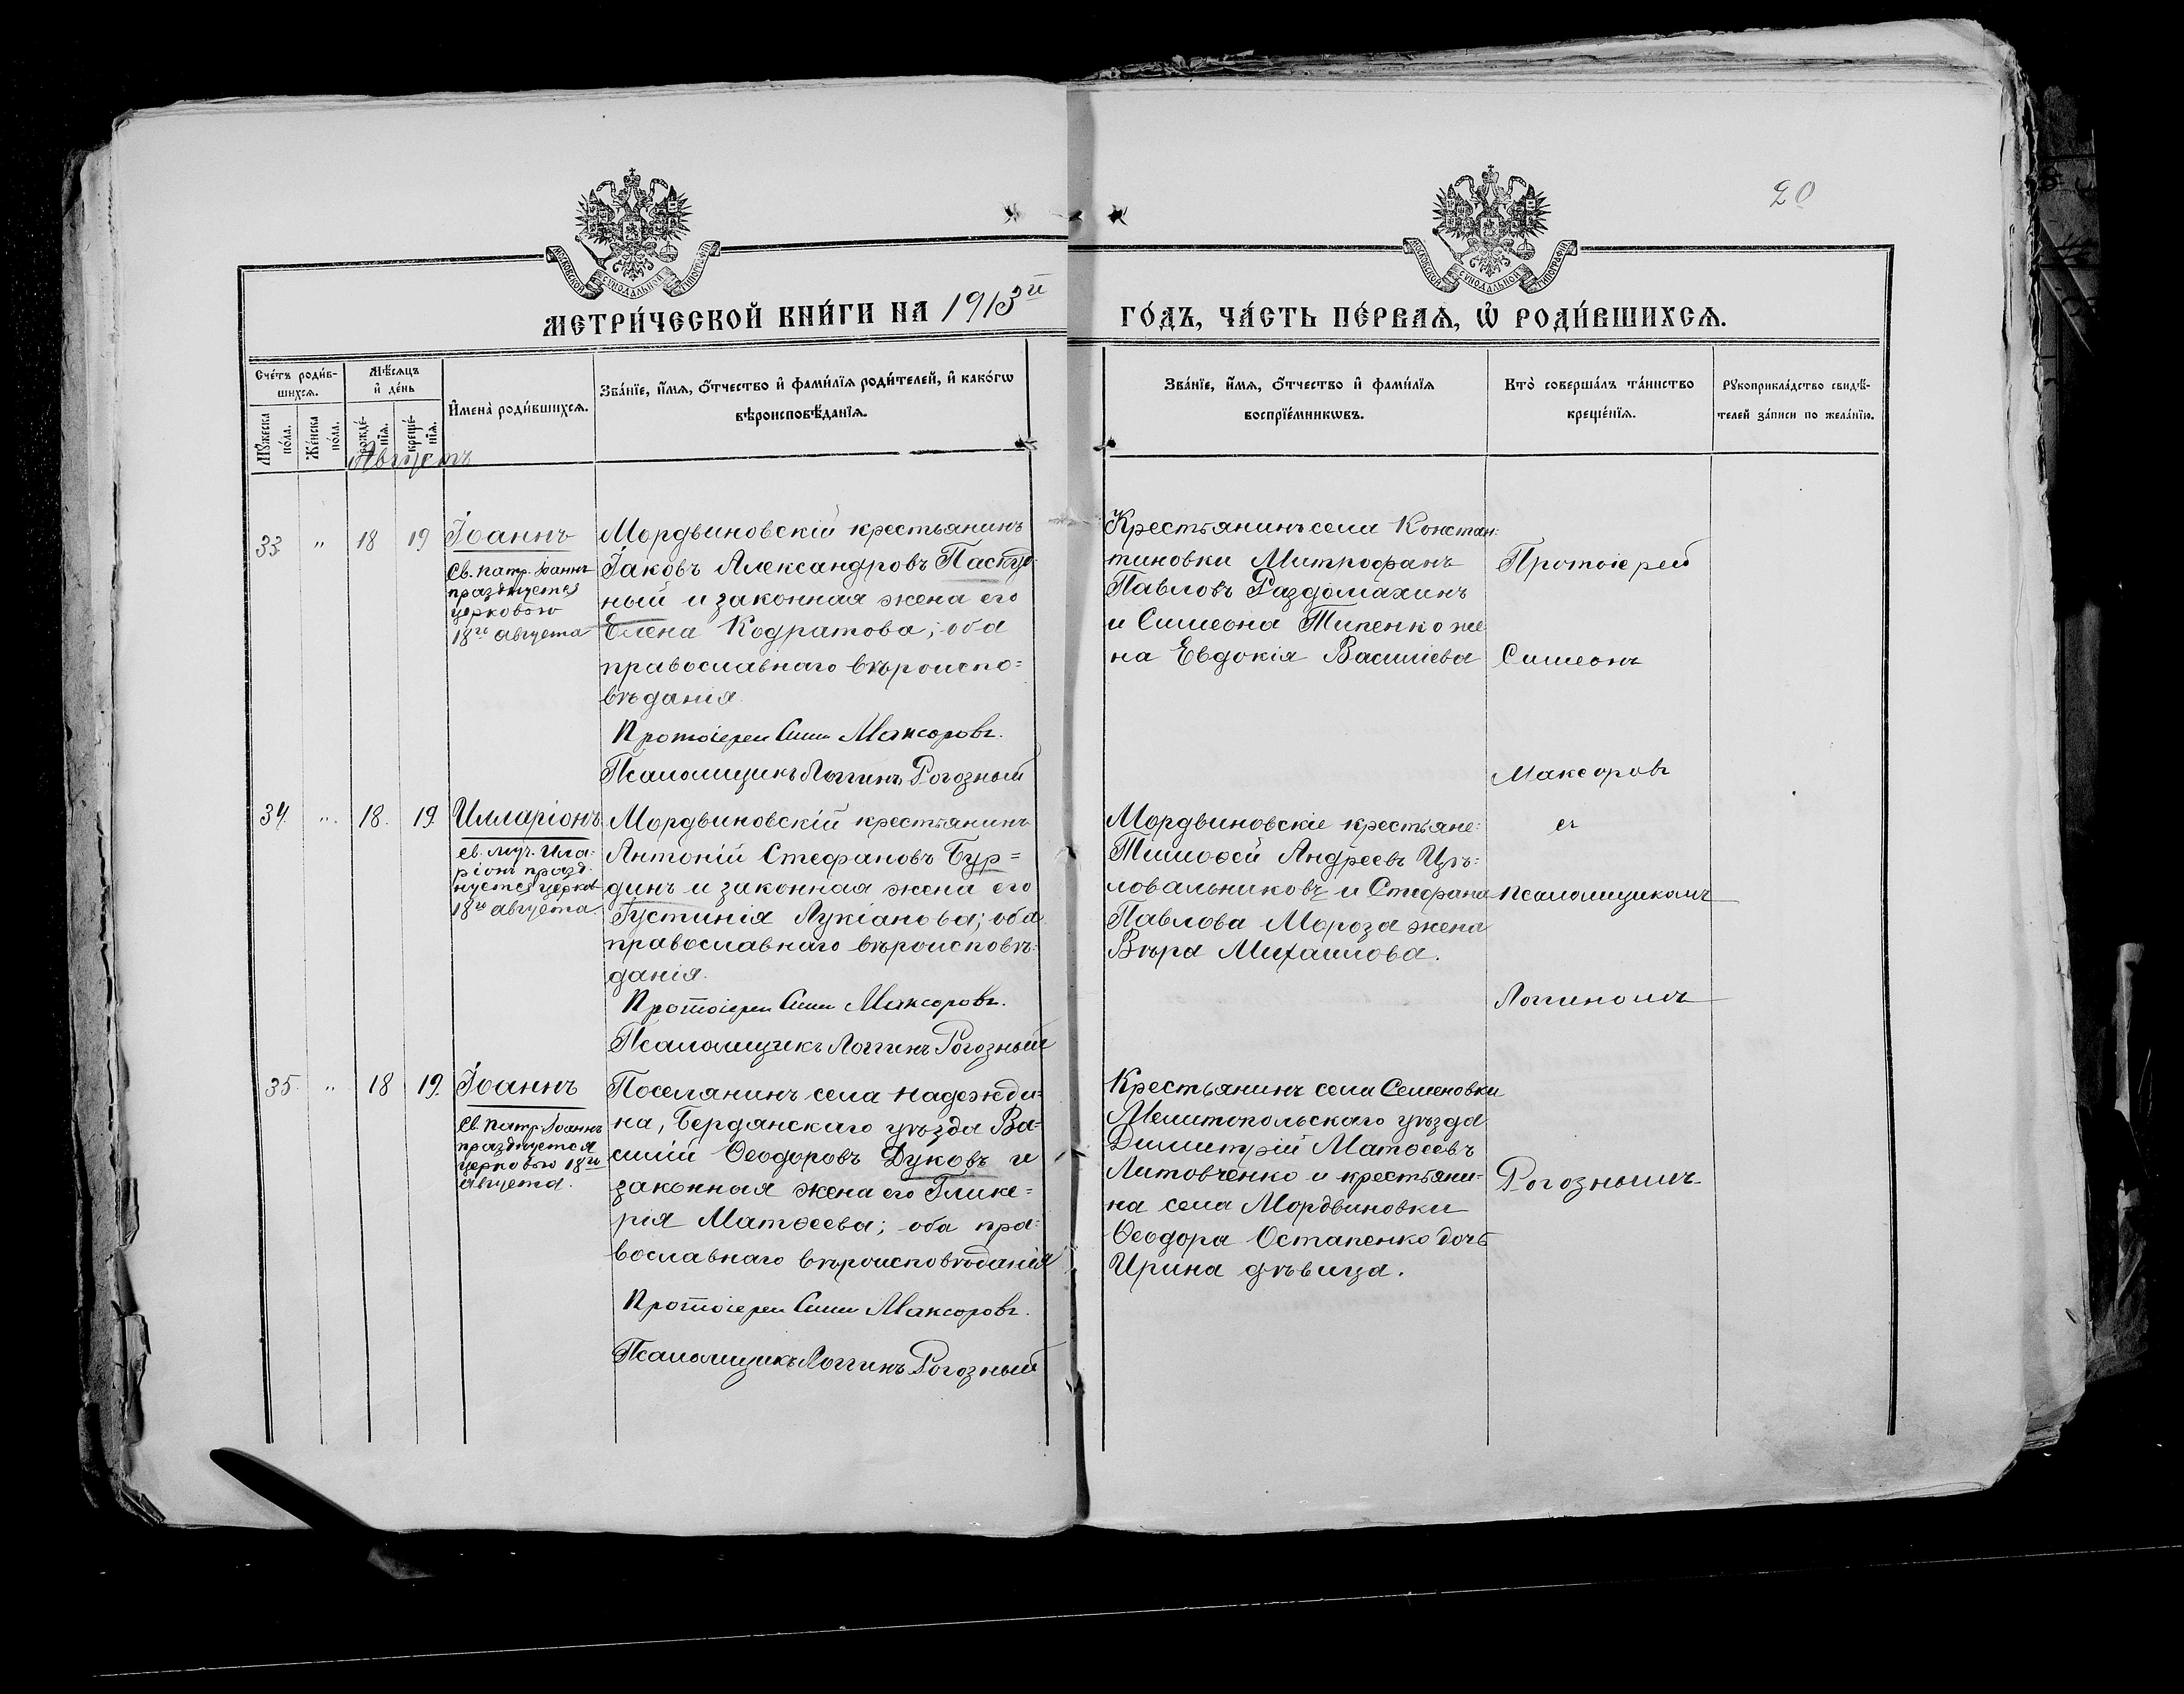 20
МОСКОВСКОЙ СѴНОДАЛЬНОЙ ТИПОГРАФІИ
МОСКОВСКОЙ СѴНОДАЛЬНОЙ ТИПОГРАФІИ
МЕТРИ́ЧЕСКОЙ КНИ́ГИ НА 1913й
ГО́ДЪ, ЧА́СТЬ ПЕ́РВАѦ, Ѡ҆ РОДИ́ВШИХСѦ.
Сче́тъ роди́в-
шихсѧ.
Мꙋ́жеска по́ла.
Же́нска по́ла.
Мѣ́сѧцъ
и҆ де́нь
рожде́-нїѧ.
креще́-нїѧ.
И҆мена̀ роди́вшихсѧ.
Зва́нїе, и҆́мѧ, ѻ҆́тчество и҆ фами́лїѧ роди́телей, и҆ како́гѡ
вѣроисповѣ́данїѧ.
Зва́нїе, и҆́мѧ, ѻ҆́тчество и҆ фами́лїѧ
воспрїе́мникѡвъ.
Кто̀ соверша́лъ та́инство
креще́нїѧ.
Рꙋкоприкла́дство свидѣ́-
телей за́писи по жела́нїю.
Августъ
33 " 18 19 Іоаннъ
Св. патр. Іоаннъ
празднуется
церковью
18го августа
Мордвиновскій крестьянинъ
Іаковъ Александровъ Паскуд-
ный и законная жена его
Елена Кодратова; оба
православнаго вѣроиспо=
вѣданія.
Протоіерей Сим Максоровъ.
Псаломщикъ Логгинъ Рогозный
Крестьянинъ села Констан-
тиновки Митрофанъ
Павловъ Раздомахинъ
и Симеона Типенко же
на Евдокія Василіева
34. " 18. 19. Илларіонъ
св. муч. Ила-
ріонъ празд.
нуется церков
18го августа.
Мордвиновскій крестьянинъ
Антоній Стефановъ Бур=
динъ и законная жена его
Іустинія Лукіанова; оба
православнаго вѣроисповѣ-
данія.
Протоіерей Сим Максоровъ.
Псаломщикъ Логгинъ Рогозный
Мордвиновскіе крестьяне:
Тимоѳей Андреевъ Цѣ-
ловальниковъ и Стефана
Павлова Мороза жена
Вѣра Михаилова.
35. " 18 19. Іоаннъ
Св. патр. Іоаннъ
празднуется
церковью 18го
августа.
Поселянинъ села Надежди-
на, Бердянскаго уѣзда Ва-
силій Ѳеодоровъ Дуковъ и
законная жена его Глике=
рія Матѳеева; оба пра-
вославнаго вѣроисповѣданія
Протоіерей Сим Максоровъ.
Псаломщикъ Логгинъ Рогозный
Крестьянинъ села Семеновки
Мелитопольскаго уѣзда
Димитрій Матѳеевъ
Литовченко и крестьяни-
на села Мордвиновки
Ѳеодора Остапенко дочь
Ирина дѣвица.
Протоіерей
Симеонъ
Максоровъ
съ
псаломщикомъ
Логгиномъ
Рогознымъ